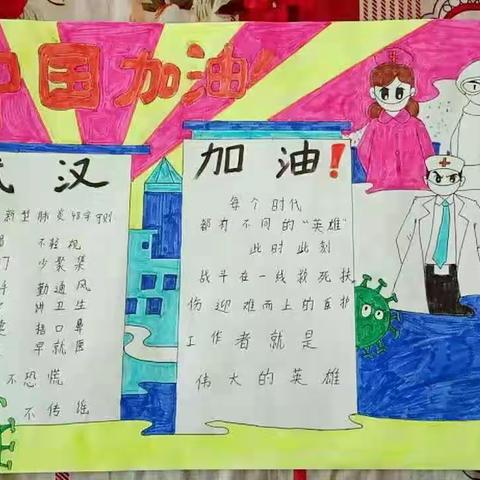 中国加油!
武汉
新型肺炎48字守则
不轻视
少聚集
勤通风
讲卫生
捂口鼻
早就医
不恐慌
不传谣
加油!
每个时代
都有不同的“英雄”
此时此刻
战斗在一线救死扶
伤迎难而上的医护
工作者就是
伟大的英雄